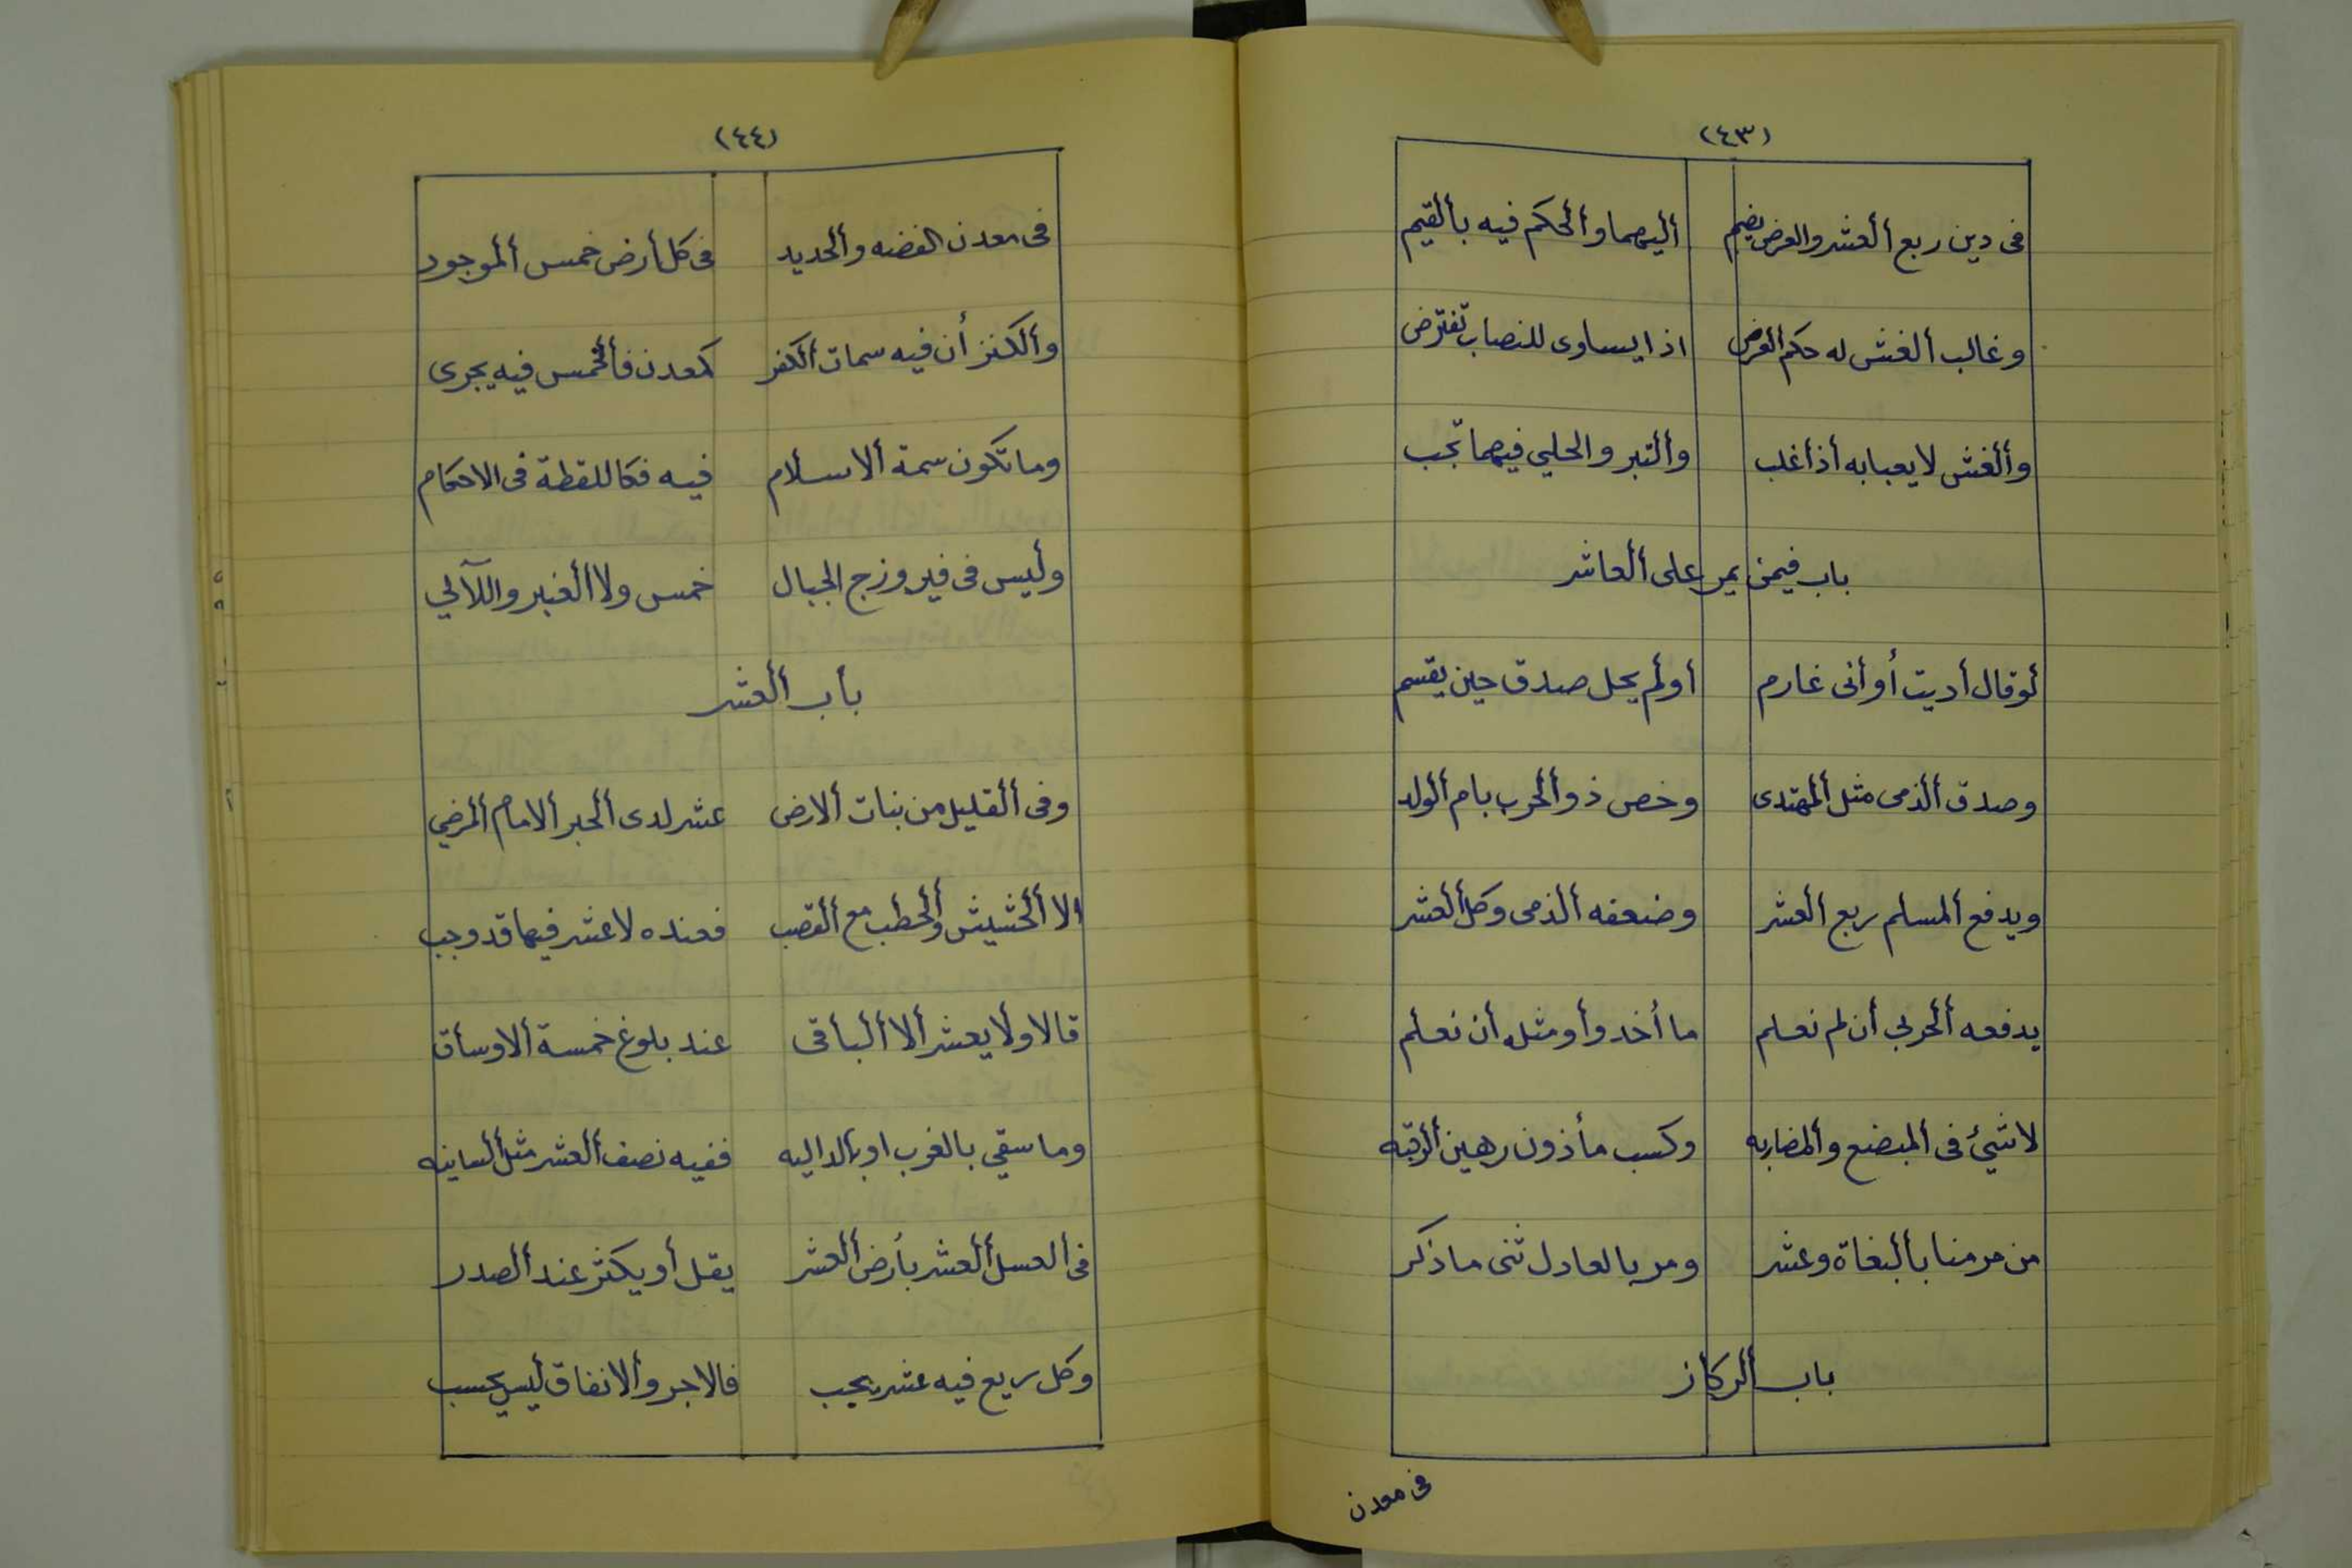 (٤٣)
فى دين ربع ألعشر والعرض يضم أليهما وألحكم فيه بألقيم
وغالب ألغش له حكم ألعرض اذا يساوى للنصاب تفترض
وألغش لا يعبا به أذا غلب وألتبر والحلي فيهما تجب
باب فيمن يمر على ألعاشر
لو قال أديت أو أنى غارم أو لم يحل صدق حين يقسم
وصدق ألذمى مثل ألمهتدى وخص ذو ألحرب بام ألولد
ويدفع ألمسلم ربع ألعشر وضعفه ألذمى وكل ألعشر
يدفعه ألحربى أن لم نعلم ما أخدوا أو مثله أن نعلم
لا شيئ فى ألمبضع وألمضاربه وكسب مأذون رهين ألرقبه
من مر منا بألبغاة وعشر ومر بالعادل ثنى ما ذكر
باب ألركاز
فى معدن
(٤٤)
فى معدن الفضه وألحديد فى كل أرض خمس ألموجود
وألكنز أن فيه سمات ألكفر كمعدن فألخمس فيه يجرى
وما تكون سمة ألاسلام فيه فكاللقطة فى الاحكام
وأليس فى فيروزج الجبال خمس ولا ألعنبر واللآلي
بأب ألعشر
وفى ألقليل من بنات ألارض عشر لدى ألحبر ألامام ألمرضي
الا ألحشيش وألحطب مع ألقصب فعنده لا عشر فيها قد وجب
قالا ولا يعشر ألا ألبأقى عند بلوغ خمسة ألاوسأق
وما سقي بالغرب او بألداليه ففيه نصف ألعشر مثل ألسانيه
فى ألعسل ألعشر بأرض ألعشر يقل أو يكثر عند ألصدر
وكل ريع فيه عشر يجب فالاجر وألانفاق ليس يحسب